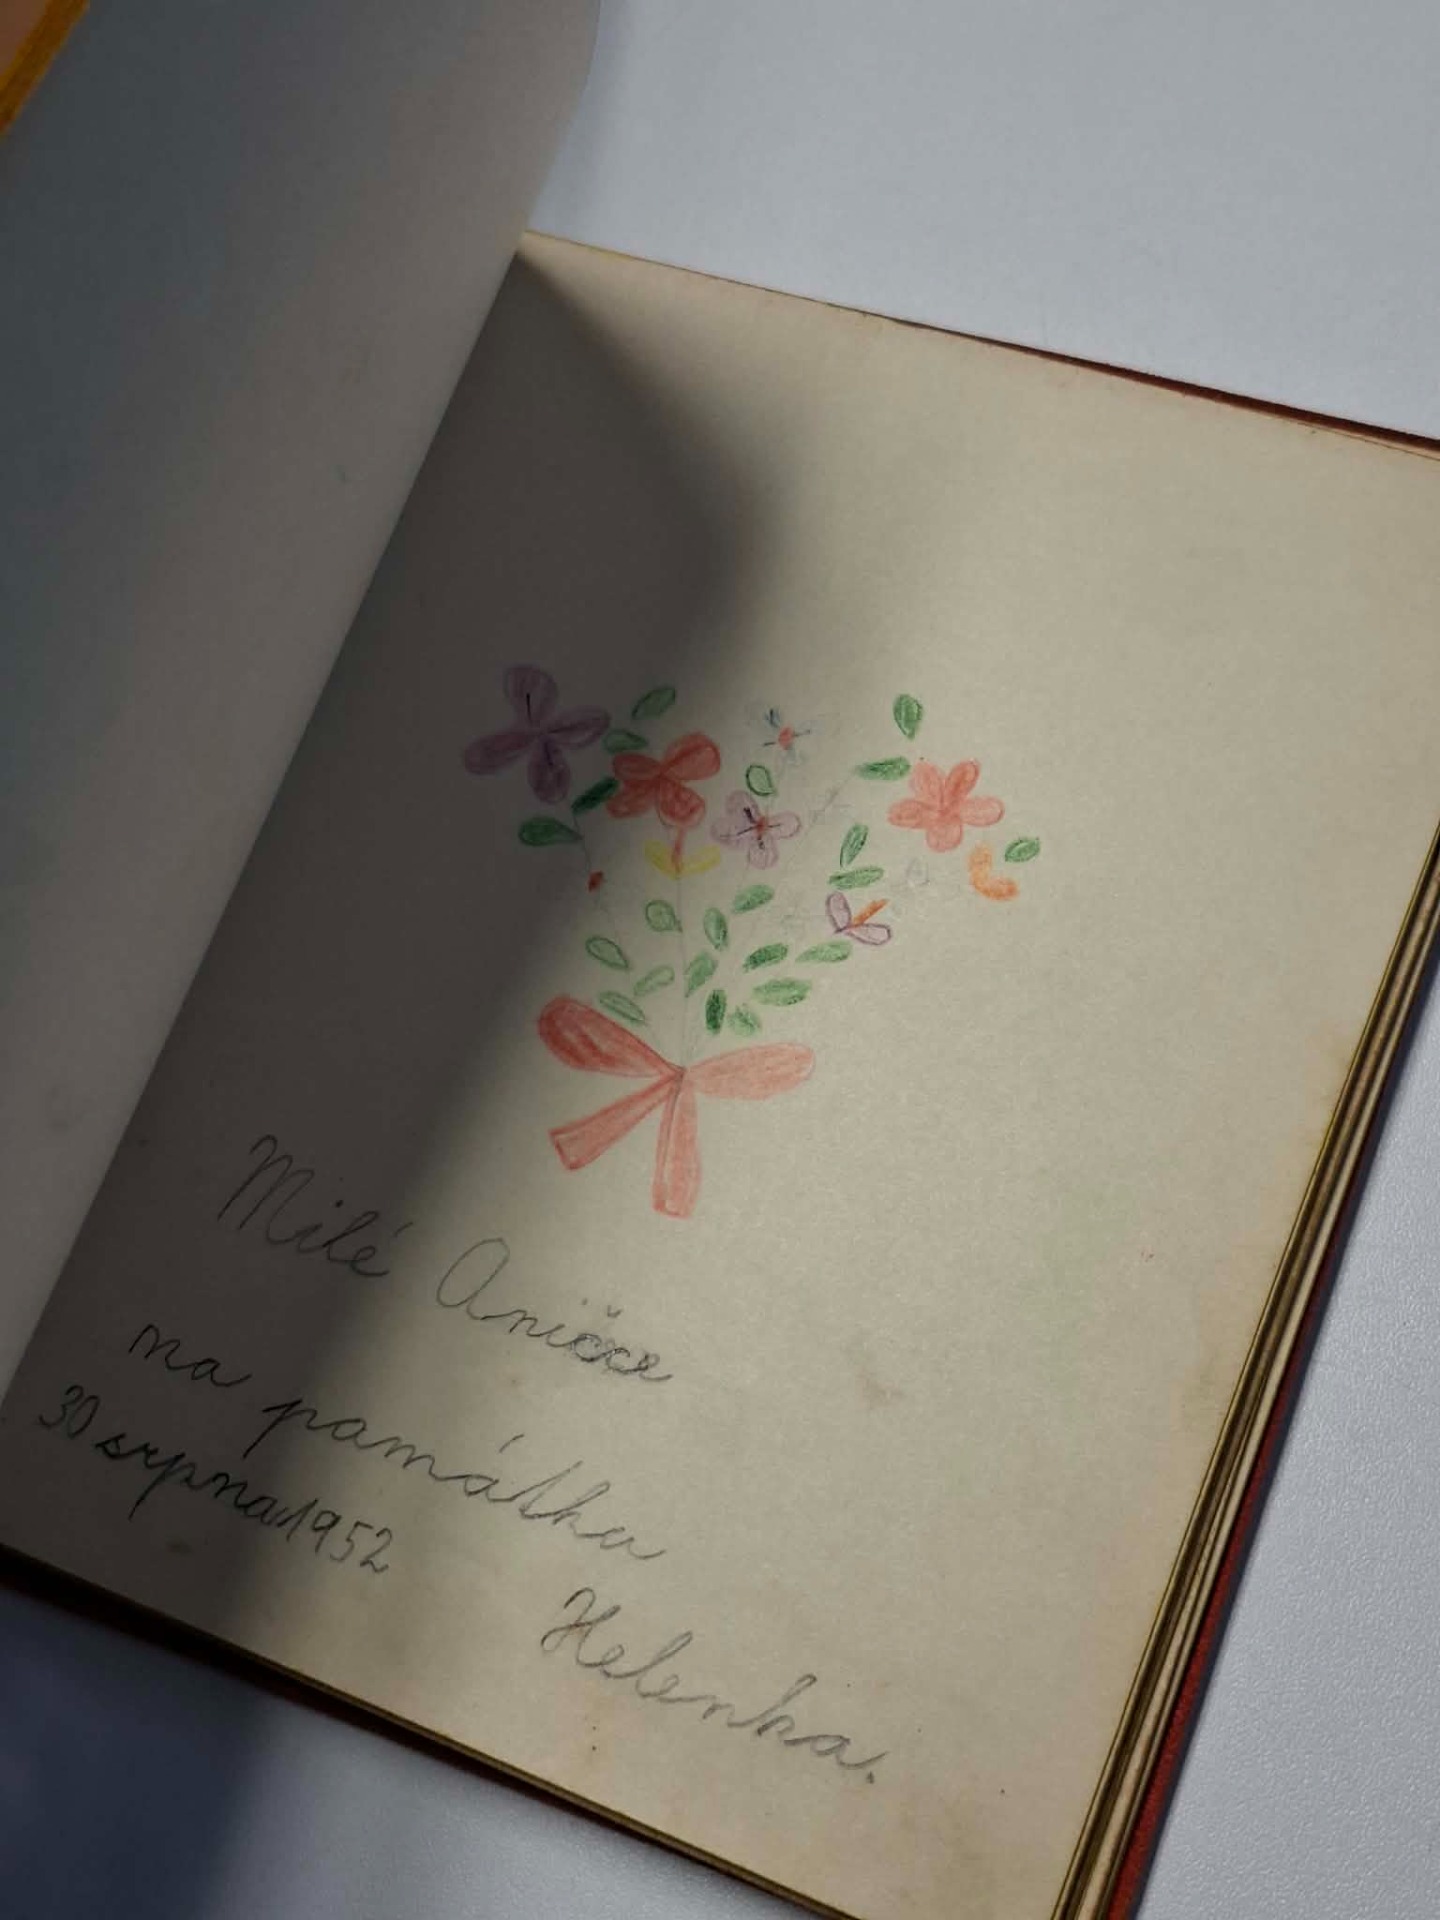 Milé Aničce
na památku
30 srpna 1952
Helenka.